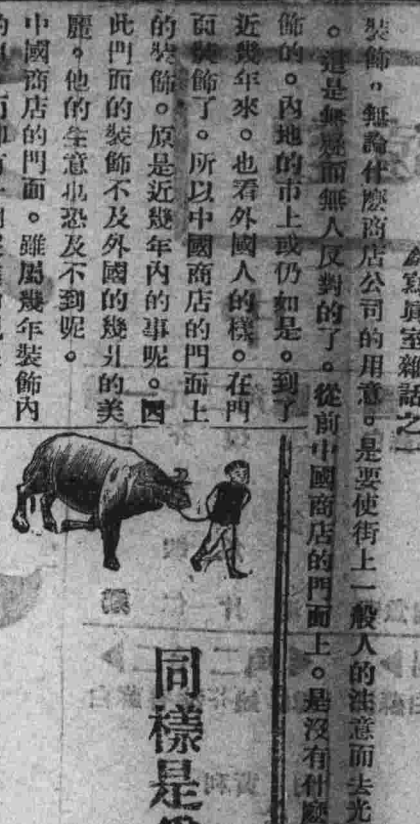 寫眞室雜話之一
裝飾。無論什麽商店公司的用意。是要使街上一般人的注意而去光
。這是無疑而無人反對的了。從前中國商店的門面上。是沒有什麽
飾的。內地的市上或仍如是。到了
近幾年來。也看外國人的樣。在門
面裝飾了。所以中國商店的門面上
的裝飾。原是近幾年內的事呢。因
此門面的裝飾不及外國的幾爿的美
麗。他的生意也恐及不到呢。
中國商店的門面。雖屬幾年裝飾內
同樣是